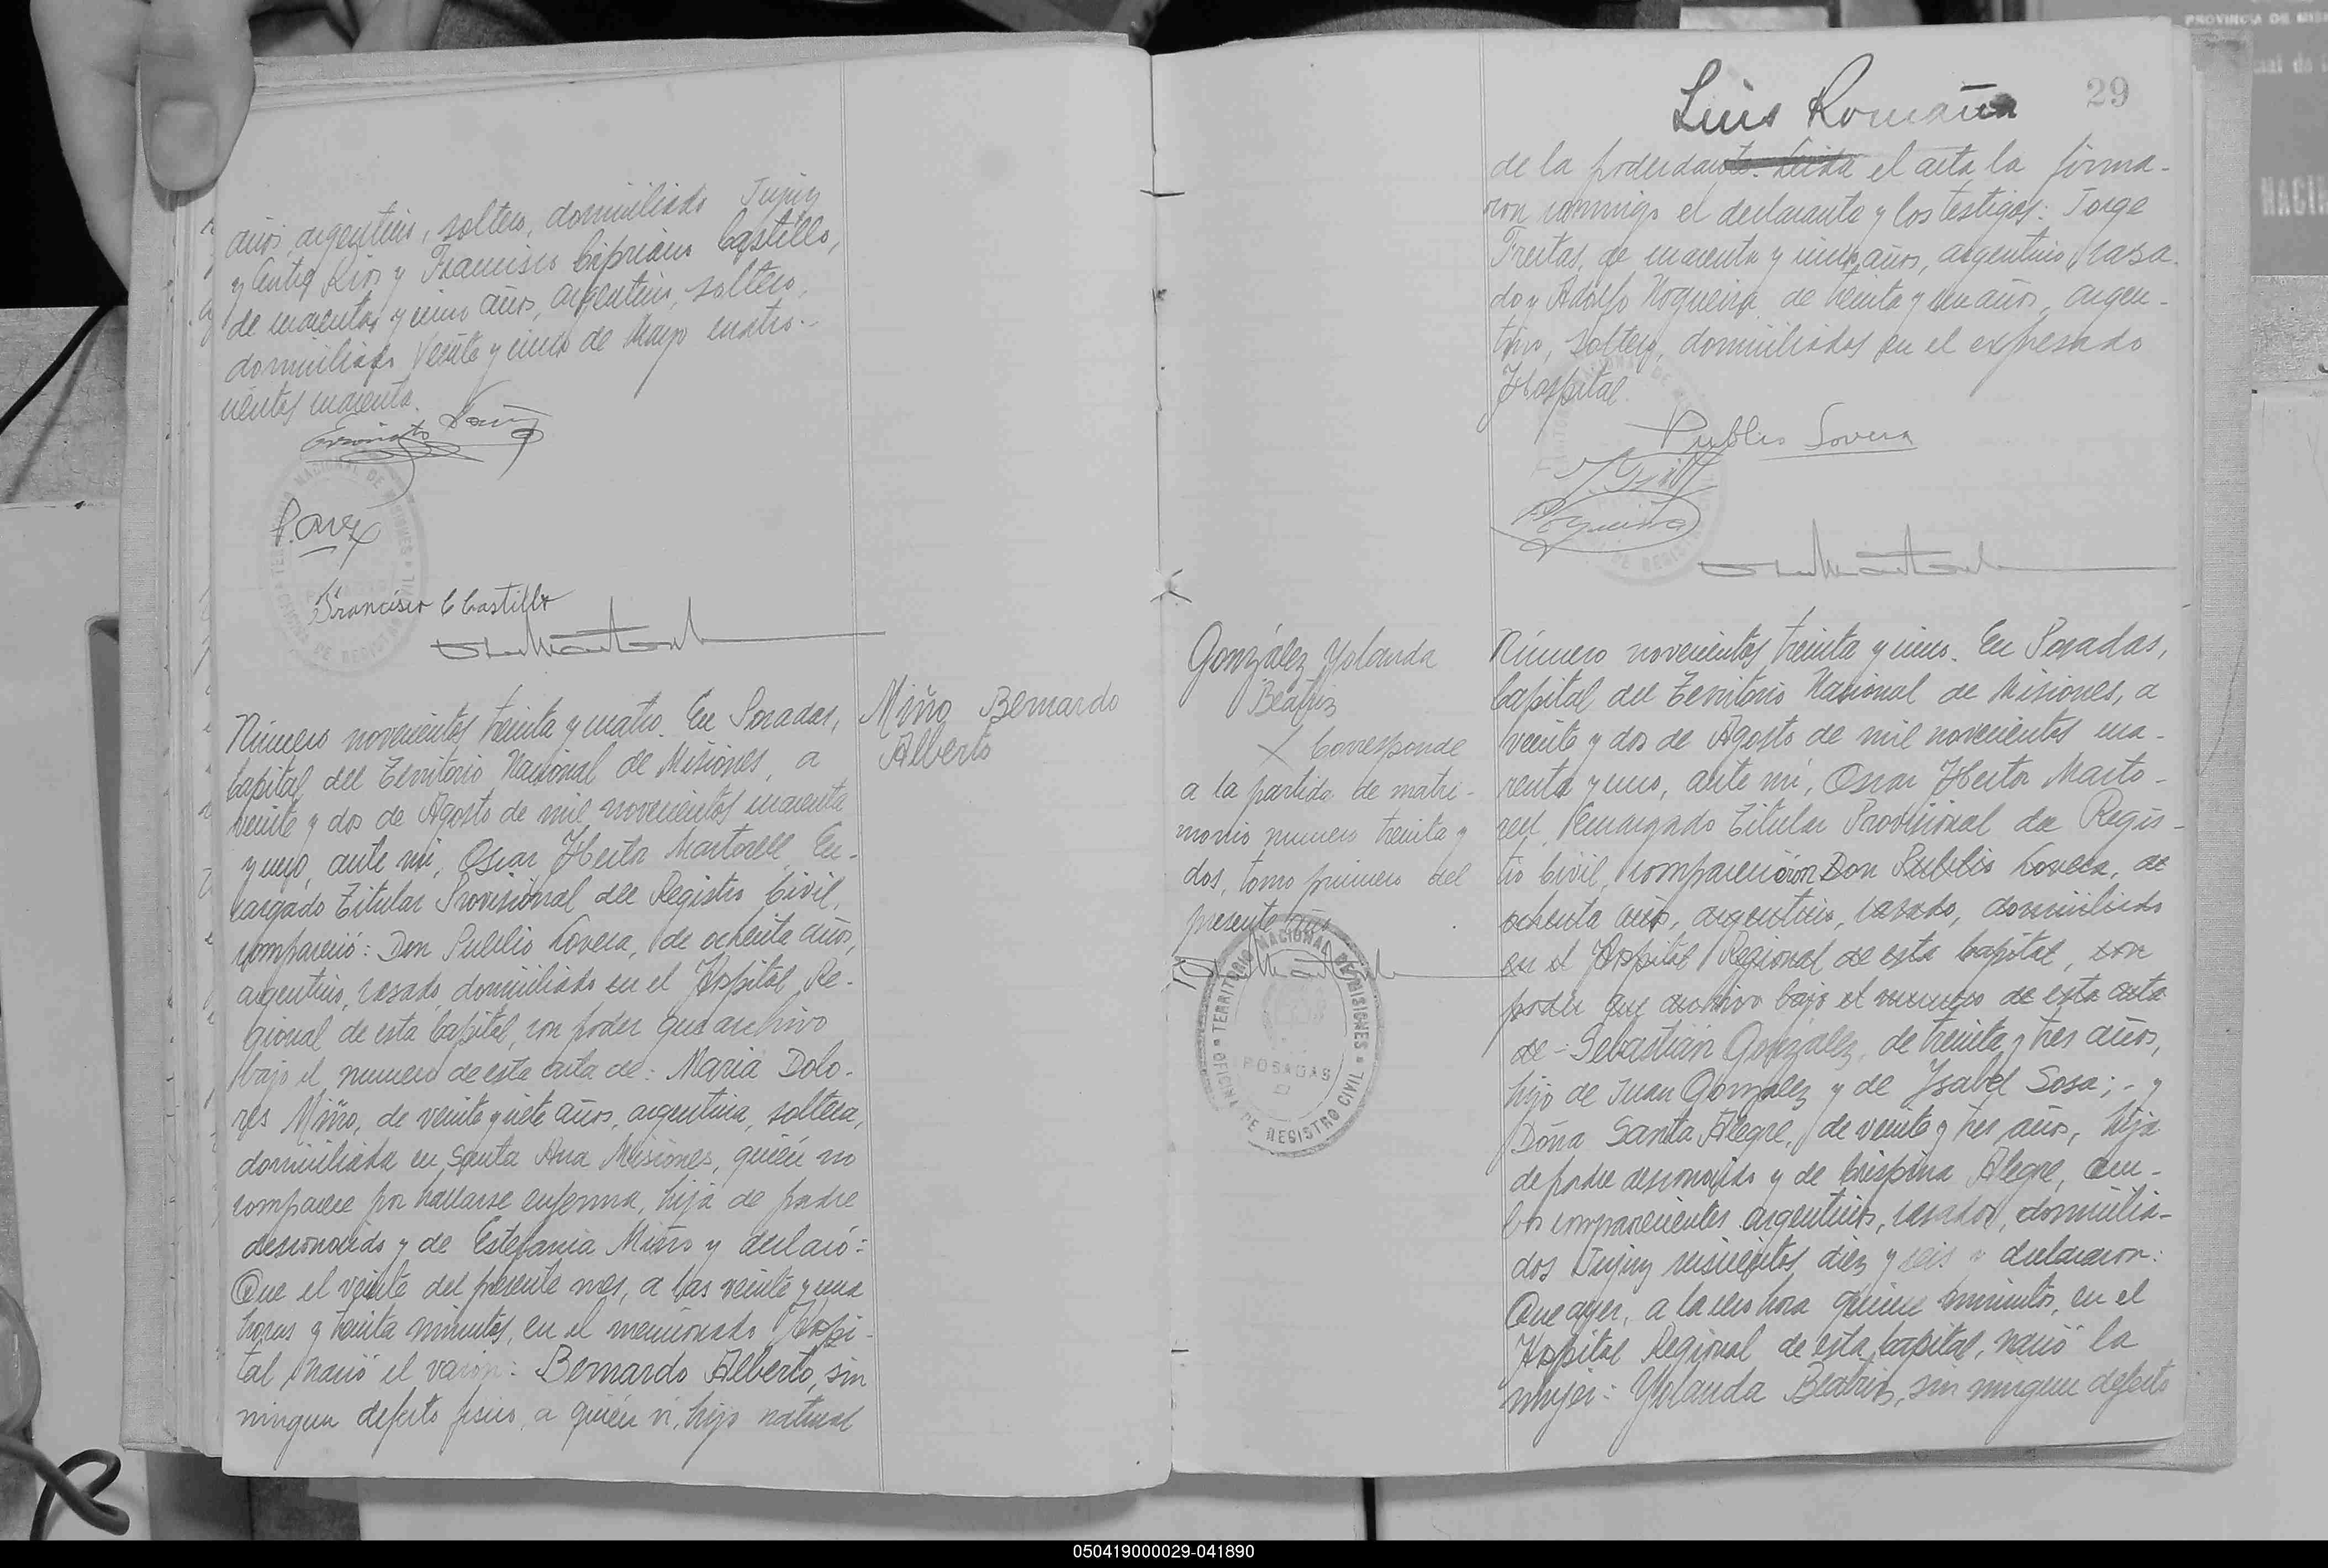 años, argentino, soltero, domiciliado Jujuy
y Entre Rios y Francisco Cipriano Castillo,
de cuarenta y cinco años, argentino, soltero,
domiciliado Veinte y cinco de Mayo cuatro-
cientos cuarenta.
Francisco C Castillo
Número novecientos treinta y cuatro. En Posadas,
Capital del Territorio Nacional de Misiones, a
veinte y dos de Agosto de mil novecientos cuarenta
y uno, ante mi, Oscar Hector Martorell, En-
cargado Titular Provisional del Registro Civil,
compareció: Don Publio Lovera, de ochenta años,
argentino, casado, domiciliado en el Hospital Re-
gional de esta Capital, con poder que archivo
bajo el numero de esta acta de: Maria Dolo-
res Miño, de veinte y siete años, argentina, soltera,
domiciliada en Santa Ana Misiones, quién no
comparece por hallarse enferma, hija de padre
desconocido y de Estefania Miño y declaró:
Que el veinte del presente mes, a las veinte y una
horas y treinta minutos, en el mencionado Hospi-
tal nació el varón: Bernardo Alberto, sin
ningun defecto fisico, a quién vi, hijo natural
Miño Bernardo
Alberto
29
Luis Romaña
de la poderdante. Leida el acta la firma-
ron conmigo el declarante y los testigos: Jorge
Freitas, de cuarenta y cinco años, argentino, casa-
do y Adolfo Nogueira, de treinta y un años, argen-
tino, soltero, domiciliados en el expresado
Hospital.
Publio Lovera
González Yolanda
Beatriz
X Corresponde
a la partida de matri-
monio numero treinta y
dos, tomo primero del
presente año
TERRITORIO NACIONAL DE MISIONES
POSADAS
OFICINA DE REGISTRO CIVIL
Número novecientos treinta y cinco. En Posadas,
Capital del Territorio Nacional de Misiones, a
veinte y dos de Agosto de mil novecientos cua-
renta y uno, ante mi, Oscar Hector Marto-
rell, Encargado Titular Provisional del Regis-
tro Civil, comparecieron Don Publio Lovera, de
ochenta años, argentino, casado, domiciliado
en el Hospital Regional de esta Capital, con
poder que archivo bajo el numero de esta acta
de- Sebastián González, de treinta y tres años,
hijo de Juan González y de Ysabel Sosa;- y
Doña Santa Alegre, de veinte y tres años, hija
de padre desconocido y de Crispina Alegre, am-
bos comparecientes argentinos, casados, domicilia-
dos Jujuy seiscientos diez y seis y declararon:
Que ayer, a la cero hora quince minutos, en el
Hospital Regional de esta Capital, nació la
mujer: Yolanda Beatriz, sin ningun defecto
050419000029-041890